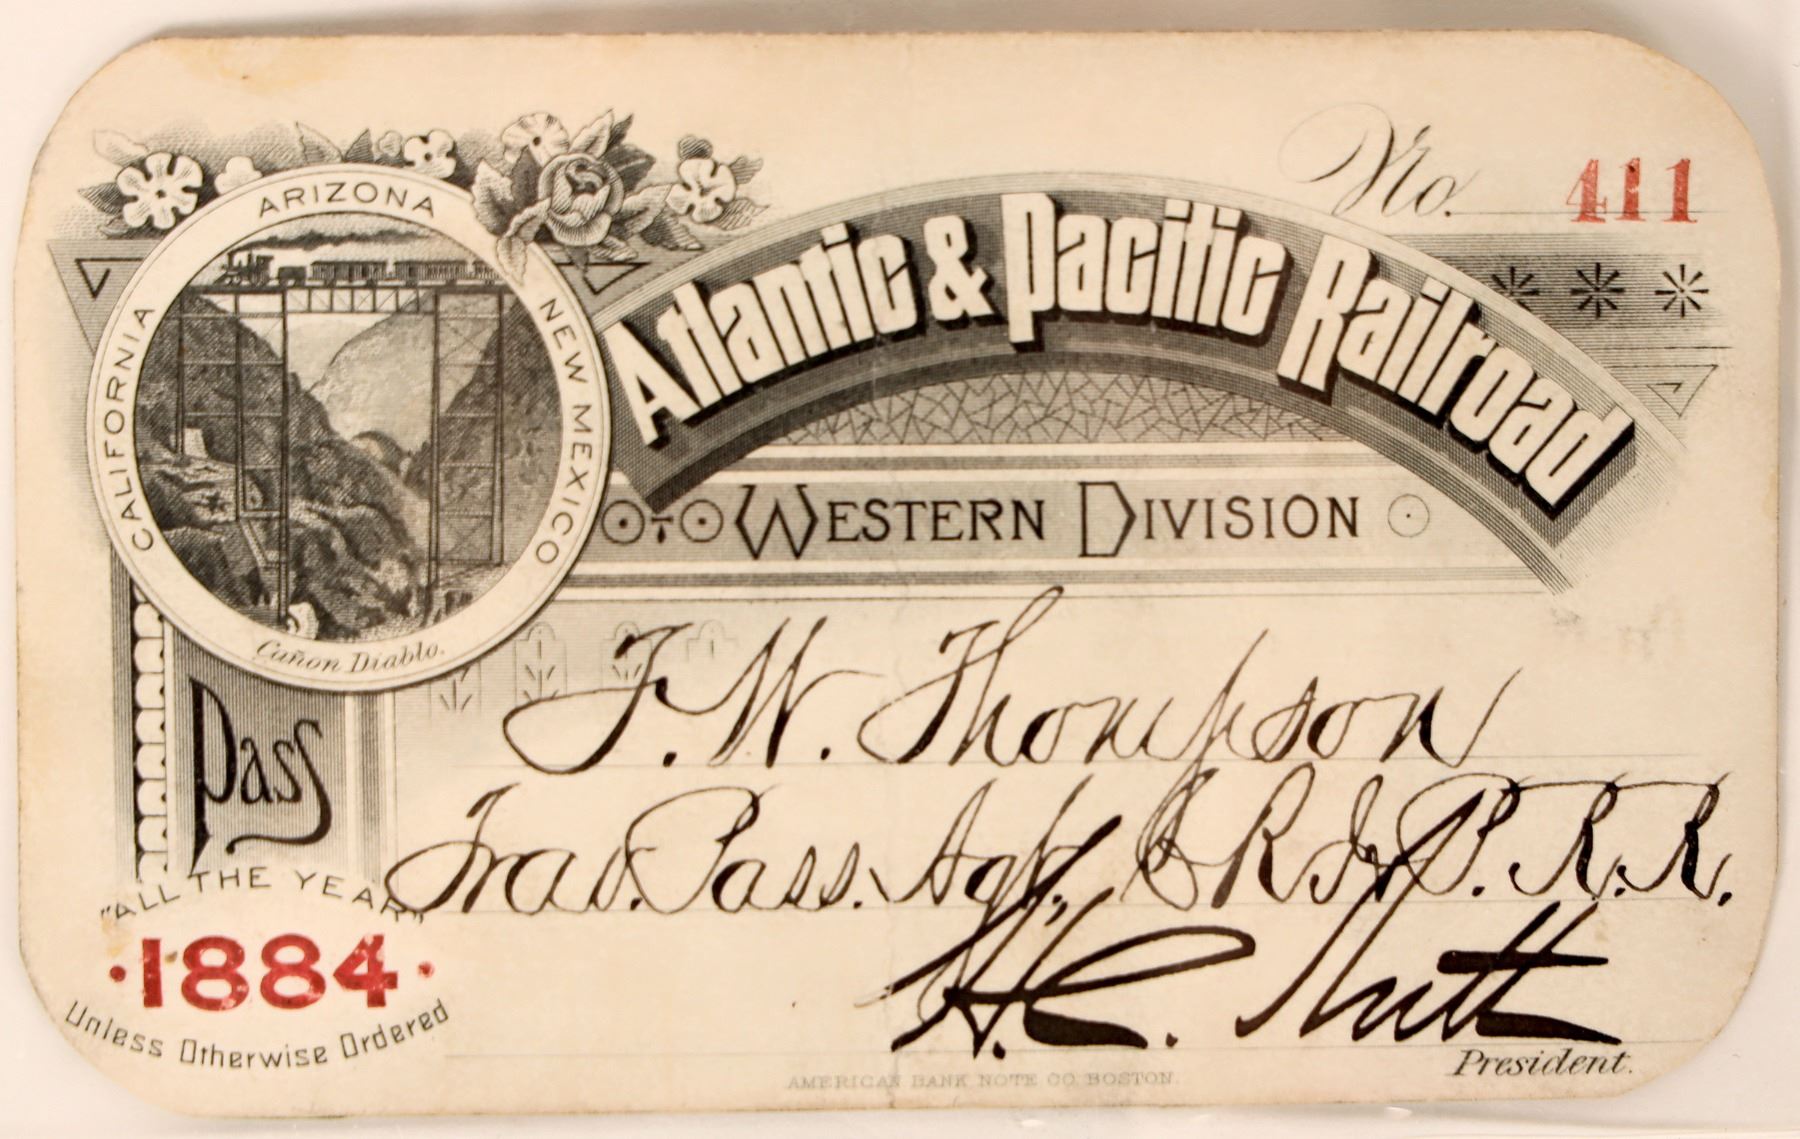 No. 411
ARIZONA
CALIFORNIA
NEW MEXICO
Cañon Diablo.
Atlantic & Pacific Railroad
WESTERN DIVISION
Pass
T. W. Thompson
Trav. Pass. Agt., C R I & P. R. R.
"ALL THE YEAR"
·1884·
Unless Otherwise Ordered
H. C. Nutt
President.
AMERICAN BANK NOTE CO. BOSTON.